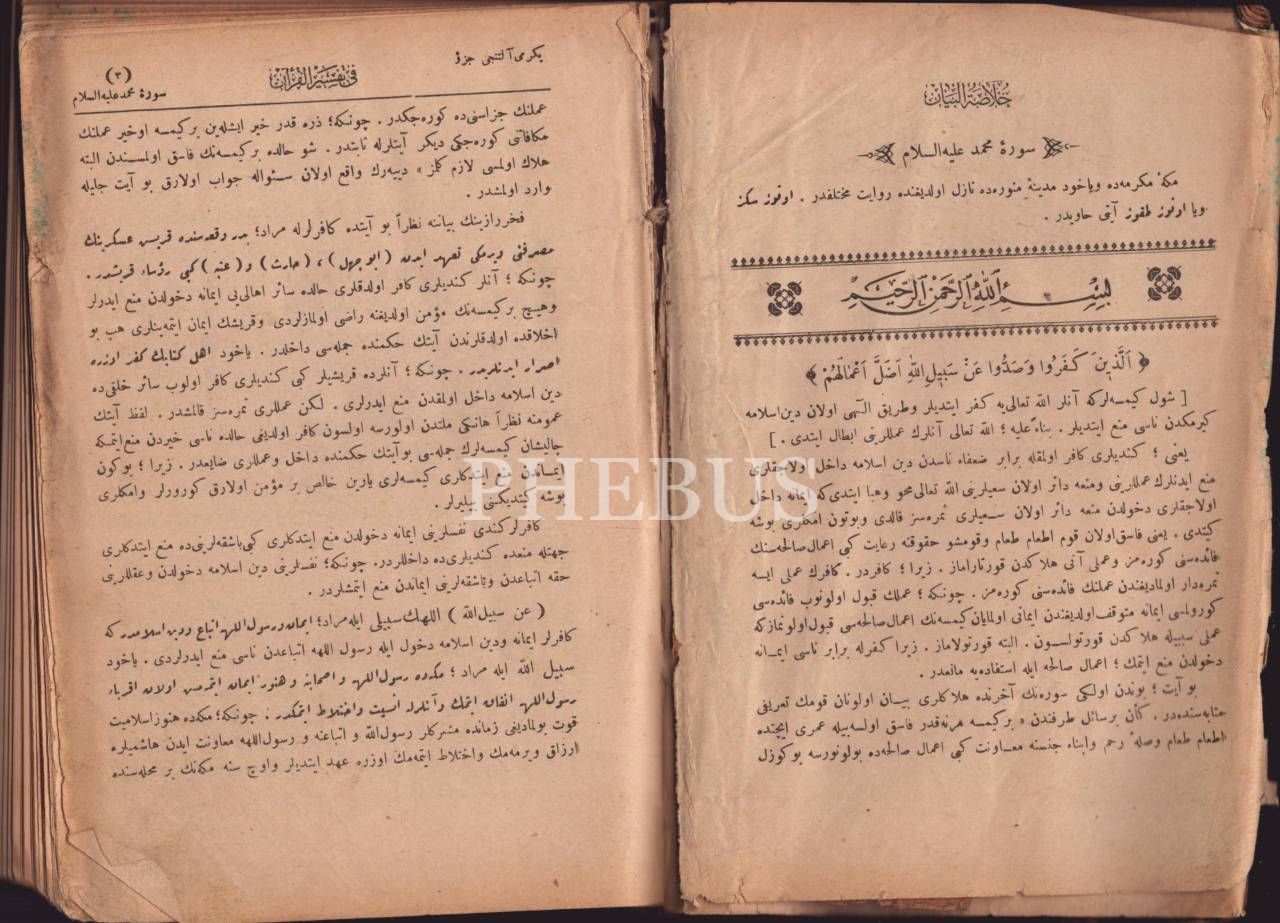 خلاصة البيان
سورۀ محمد عليه السلام
مكۀ مكرمه‌ده وياخود مدينۀ منوره‌ده نازل اولديغنده روايت مختلفدر . اوتوز سكز
ويا اوتوز طقوز آيتى حاويدر .
بسم الله الرحمن الرحيم
﴿ اَلَّذِينَ كَفَرُوا وَصَدُّوا عَنْ سَبِيلِ اللّٰهِ اَضَلَّ اَعْمَالَهُمْ ﴾
[ شول كيمسه‌لركه آنلر الله تعالى‌يه كفر ايتديلر وطريق الٓهى اولان دين اسلامه
كيرمكدن ناسى منع ايتديلر . بناءً عليه ؛ الله تعالى آنلرك عمللرينى ابطال ايتدى . ]
يعنى ؛ كنديلرى كافر اولمقله برابر ضعفاء ناسدن دين اسلامه داخل اولاجقلرى
منع ايدنلرك عمللرينى ومنعه دائر اولان سعيلرينى الله تعالى محو وهبا ايتدى كه ايمانه داخل
اولاجقلرى دخولدن منعه دائر اولان سعيلرى ثمره‌سز قالدى وبوتون امكلرى بوشه
كيتدى . يعنى فاسق اولان قوم اطعام طعام وقومشو حقوقنه رعايت كبى اعمال صالحه‌سنك
فائده‌سنى كوره‌مز وعملى آنى هلاكدن قورتاراماز . زيرا ؛ كافردر . كافرك عملى ايسه
ثمره‌دار اولماديغندن عملنك فائده‌سنى كوره‌مز . چونكه ؛ عملك قبول اولونوب فائده‌سى
كورولمسى ايمانه متوقف اولديغندن ايمانى اولمايان كيمسه‌نك اعمال صالحه‌سى قبول اولونمازكه
عملى سببيله هلاكدن قورتولسون . البته قورتولاماز . زيرا كفرله برابر ناسى ايمانه
دخولدن منع ايتمك ؛ اعمال صالحه ايله استفاده‌يه مانعدر .
بو آيت ؛ بوندن اولكى سوره‌نك آخرنده هلاكلرى بيان اولونان قومك تعريفى
مثابه‌سنده‌در . كأن برسائل طرفندن « بركيمسه هرنه‌قدر فاسق اولسه‌بيله عمرى ايچنده
اطعام طعام وصلۀ رحم وابناء جنسنه معاونت كبى اعمال صالحه‌ده بولونورسه بوكوزل
يكرمى آلتنجى جزؤ
فى تفسير القرآن
(٣)
سورۀ محمد عليه السلام
عملنك جزاسنى‌ده كوره‌جكدر . چونكه ؛ ذره قدر خير ايشله‌ين بركيمسه اوخير عملنك
مكافاتنى كوره‌جكى ديكر آيتلرله ثابتدر . شو حالده بركيمسه‌نك فاسق اولمسندن البته
هلاك اولمسى لازم كلمز » دييه‌رك واقع اولان سئواله جواب اولارق بو آيت جليله
وارد اولمشدر .
فخررازينك بياننه نظراً بو آيتده كافرلرله مراد ؛ بدر وقعه‌سنده قريش عسكرينك
مصرفنى ويرمكى تعهد ايدن ( ابو جهل ) ، ( حارث ) و ( عتبه ) كبى رؤساء قريشدر .
چونكه ؛ آنلر كنديلرى كافر اولدقلرى حالده سائر اهالى‌يى ايمانه دخولدن منع ايدرلر
وهيچ بركيمسه‌نك مؤمن اولديغنه راضى اولمازلردى وقريشك ايمان ايتمه‌ينلرى هپ بو
اخلاقده اولدقلرندن آيتك حكمنده جمله‌سى داخلدر . ياخود اهل كتابك كفر اوزره
اصرار ايدنلريدر . چونكه ؛ آنلرده قريشيلر كبى كنديلرى كافر اولوب سائر خلقى‌ده
دين اسلامه داخل اولمقدن منع ايدرلرى . لكن عمللرى ثمره‌سز قالمشدر . لفظ آيتك
عمومنه نظراً هانكى ملتدن اولورسه اولسون كافر اولديغى حالده ناسى خيردن منع ايتمكه
چاليشان كيمسه‌لرك جمله‌سى بوآيتك حكمنده داخل وعمللرى ضايعدر . زيرا ؛ بوكون
ايمانـدن منع ايتدكلرى كيمسه‌لرى يارين خالص بر مؤمن اولارق كورورلر وامكلرى
بوشه كيتديكنى بيليرلر .
كافرلركندى نفسلرينى ايمانه دخولدن منع ايتدكلرى كبى باشقه‌لرينى‌ده منع ايتدكلرى
جهتله منعده كنديلرى‌ده داخللردر. چونكه ؛ نفسلرينى دين اسلامه دخولدن وعقللرينى
حقه اتباعدن وباشقه‌لرينى ايماندن منع ايتمشلردر .
( عن سبيل الله ) اللهك سبيلى ايله مراد ؛ ايمان ورسول اللهه اتباع ودين اسلامدر كه
كافرلر ايمانه ودين اسلامه دخول ايله رسول اللهه اتباعدن ناسى منع ايدرلردى . ياخود
سبيل الله ايله مراد ؛ مكه‌ده رسول اللهه و اصحابنه و هنوز ايمان ايتمه‌مش اولان اقرباء
رسول اللهه انفاق ايتمك وآنلرله انسيت واختلاط ايتمكدر . چونكه ؛ مكه‌ده هنوز اسلاميت
قوت بولماديغى زمانده مشركلر رسول الله و اتباعنه و رسول اللهه معاونت ايدن هاشميلره
ارزاق ويرمه‌مك واختلاط ايتمه‌مك اوزره عهد ايتديلر واوچ سنه مكه‌نك بر محله‌سنده
PHEBUS